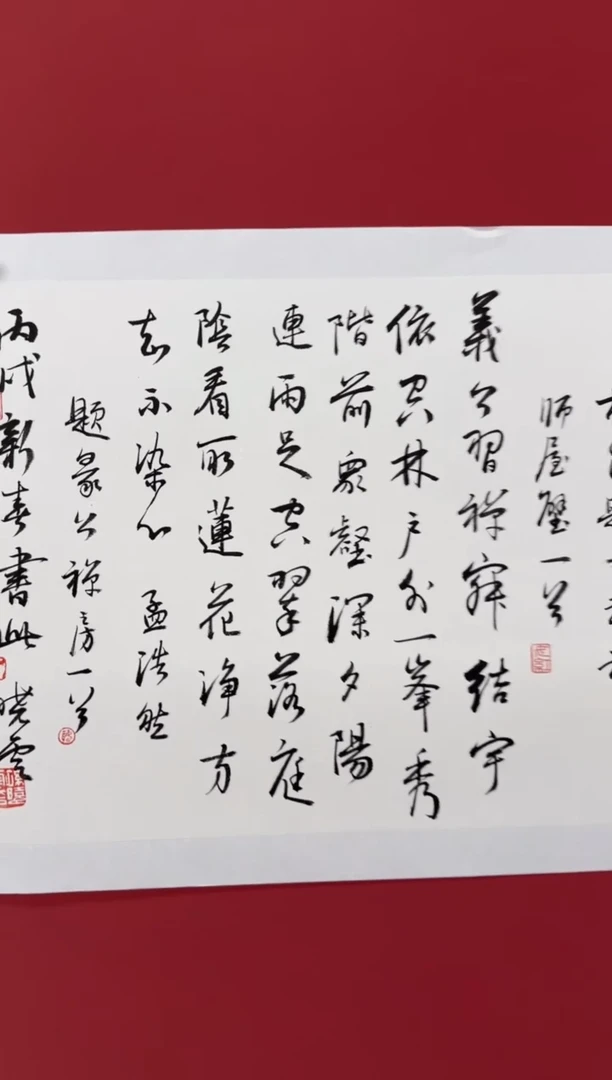 師屋壁一首
義公習禅寂結宇
依空林戶外一峯秀
階前眾壑深夕陽
連雨足空翠落庭
陰看取蓮花净方
知不染心 孟浩然
題義公禅房一首
丙戌新春書此 曉雲